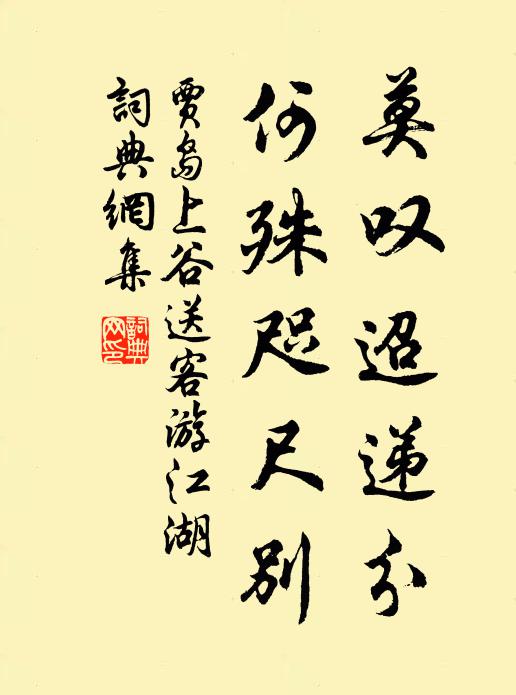 莫叹迢递分
何殊咫尺别
賈島上谷送客游江湖
詞典網集
詞典
网印